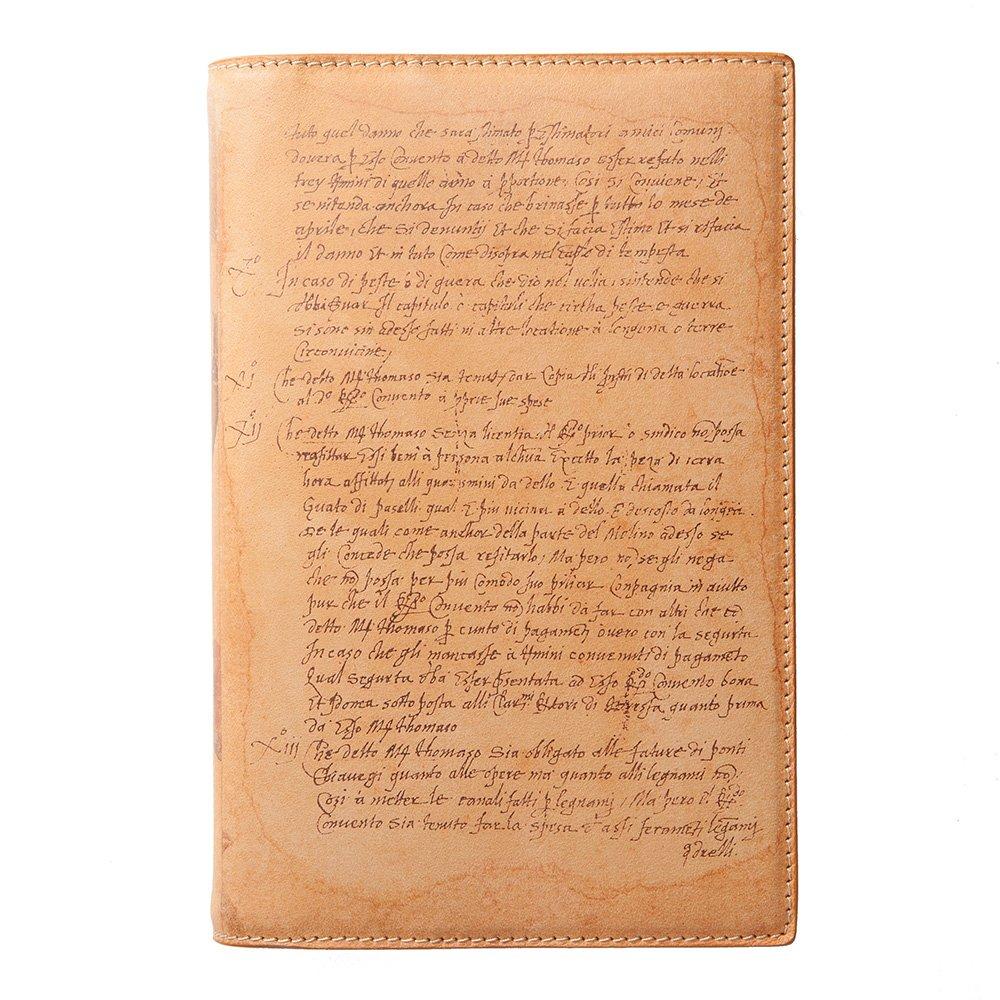 tuto quel danno che sara stimato p Estimatori amici Comuni
dovera p Esso Convento a detto M4 thomaso esser refato nelli
trey tmini di quello anno a pportione, Cosi si Conviene, Et
se intenda anchora In caso che brinasse p tutto lo mese de
aprile, che si denuntij Et che si facia Estimo Et si rifacia
il danno Et in tuto Come disopra nel caplo di tempesta
Xo In caso di peste o di guera che dio nol volia, sintende che si
Il capitulo o capituli che circha peste e guerra
si sono sin adesso fatti in altre locatione a o terre
Circonvicine,
XI o Che detto M4 thomaso sia dar Copia di detta locatioe
al do Convento a pprie sue spese
XII o Che detto M4 thomaso senza licentia prior o sindico no possa
reafittar Essi beni a persona alchuna Excetto la peza di terra
hora affittoti alli da dello E quella chiamata il
Guato di Paselli qual E piu vicina a dello E descosto da
se le quali come anchor della parte del Molino adesso se
gli Concede che possa refitarlo, Ma pero no se gli nega
che no possa per piu Comodo suo pilicar Conpagnia in aiutto
pur che il Convento no habbi da far con altri che Et
detto M4 thomaso p cunto di pagameti overo con la segurta
In caso che gli mancasse a tmini convenuti di pagameto
Qual segurta Esser psentata ad Esso Convento bona
Et Idonea sotto posta alli di quanto prima
da Esso M4 thomaso
XIII o Che detto M4 thomaso sia obligato alle fature di ponti
Chiavegi quanto alle opere ma quanto alli legnami no,
Cozi a metter le canali fatti p legnami, Ma pero il
Convento sia tenuto far la spesa assi ferameti legami
qdrelli.